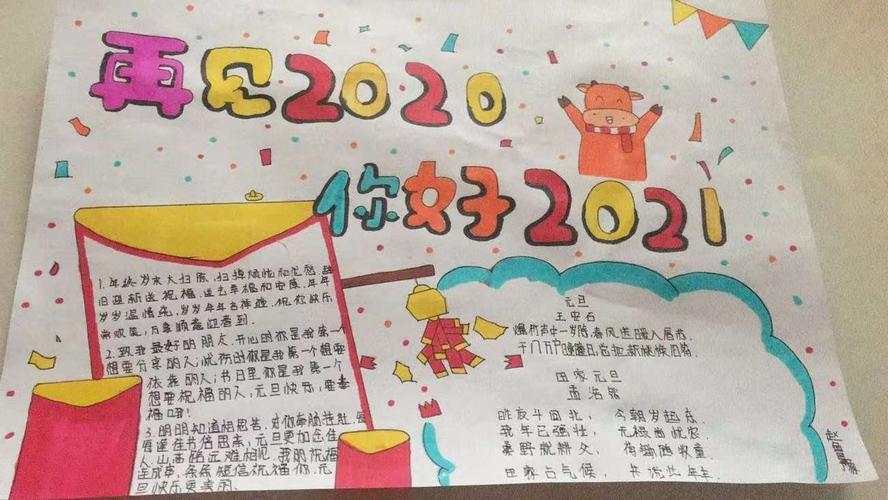 再见2020
你好2021
1.年终岁末大扫除,扫掉烦恼和忧愁,辞
旧迎新送祝福,送去幸福和安康,年年
岁岁温情在,岁岁年年吉祥绕,祝你快乐
常欢笑,万事顺意迎春到.
2.致我最好的朋友,开心时你是我第一个
想要分享的人;忧伤时你是我第一个想要
依靠的人;节日里你是我第一个
想要祝福的人,元旦快乐,要幸
福哦!
3.明明知道相思苦,对你牵肠挂肚,每
每逢佳节倍思亲,元旦更加念佳
人,山高路远难相见,我的祝福
连成串,条条短信祝福你,元
旦快乐更美丽.
元旦
王安石
爆竹声中一岁除,春风送暖入屠苏.
千门万户曈曈日,总把新桃换旧符.
田家元旦
孟浩然
昨夜斗回北, 今朝岁起东
我年已强壮, 无禄尚忧农.
桑野就耕父, 荷锄随牧童.
田家占气候, 共说此年丰.
赵